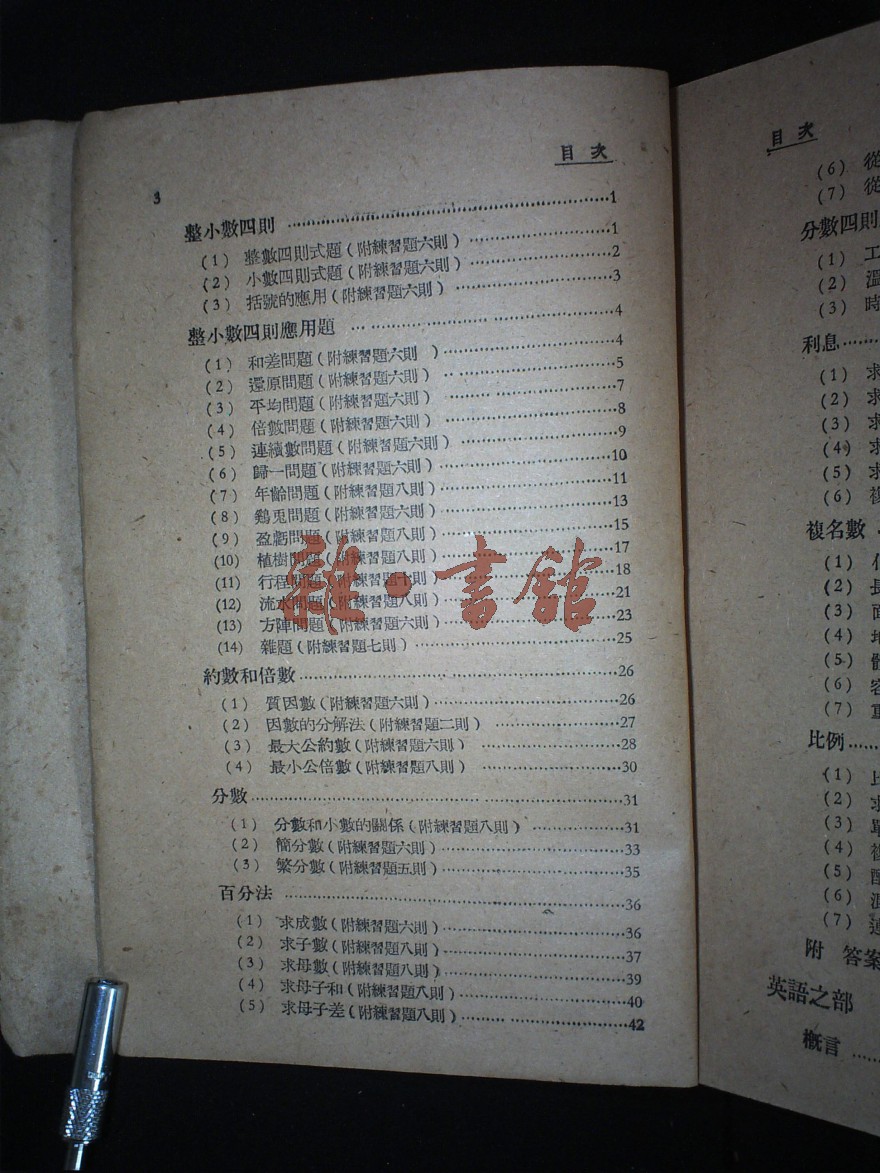 目 次
3
整小數四則 ……1
(1) 整數四則式題(附練習題六則) ……1
(2) 小數四則式題(附練習題六則) ……2
(3) 括號的應用(附練習題六則) ……3
整小數四則應用題 ……4
(1) 和差問題(附練習題六則 ) ……4
(2) 還原問題(附練習題六則) ……5
(3) 平均問題(附練習題六則) ……7
(4) 倍數問題(附練習題六則) ……8
(5) 連續數問題(附練習題六則) ……9
(6) 歸一問題(附練習題六則) ……10
(7) 年齡問題(附練習題八則) ……11
(8) 鷄兎問題(附練習題六則) ……13
(9) 盈虧問題(附練習題八則) ……15
(10) 植樹問題(附練習題八則) ……17
(11) 行程問題(附練習題十則) ……18
(12) 流水問題(附練習題八則) ……21
(13) 方陣問題(附練習題六則) ……23
(14) 雜題(附練習題七則) ……25
約數和倍數 ……26
(1) 質因數(附練習題六則) ……26
(2) 因數的分解法(附練習題二則) ……27
(3) 最大公約數(附練習題六則) ……28
(4) 最小公倍數(附練習題八則) ……30
分數 ……31
(1) 分數和小數的關係(附練習題八則) ……31
(2) 簡分數(附練習題六則) ……33
(3) 繁分數(附練習題五則) ……35
百分法 ……36
(1) 求成數(附練習題六則) ……36
(2) 求子數(附練習題八則) ……37
(3) 求母數(附練習題八則) ……39
(4) 求母子和(附練習題八則) ……40
(5) 求母子差(附練習題八則) ……42
雜·書館
目 次
(6) 從
(7) 從
分數四則
(1) 工
(2) 溫
(3) 時
利息 ……
(1) 求
(2) 求
(3) 求
(4) 求
(5) 求
(6) 複
複名數
(1)
(2) 長
(3) 面
(4) 地
(5) 體
(6) 容
(7) 重
比例 ……
(1) 比
(2) 求
(3) 單
(4) 複
(5) 配
(6) 混
(7) 連
附 答案
英語之部
概言 ……